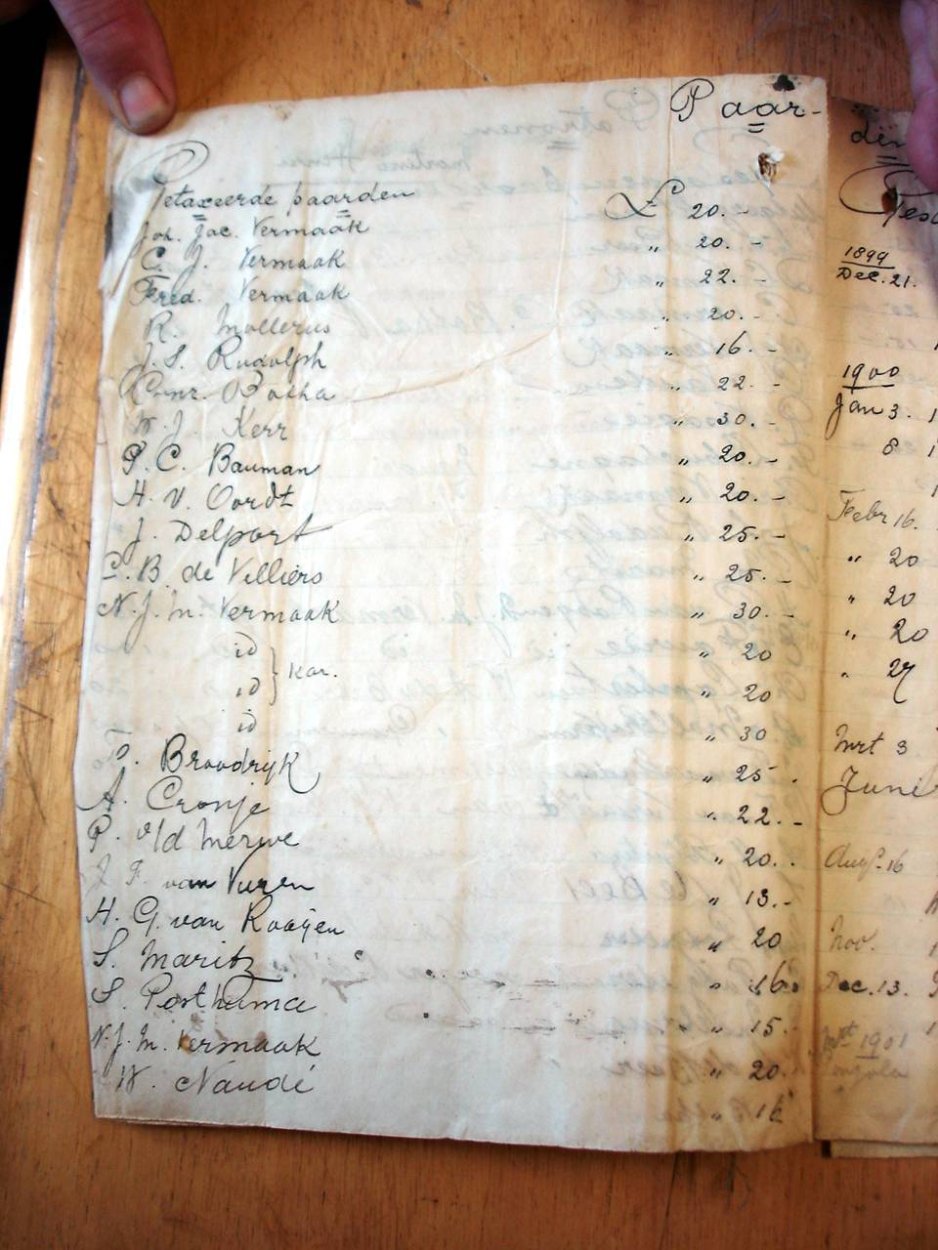 Paar-
Getaxeerde paarden
Joh. Jac. Vermaak £ 20. -
C. J. Vermaak " 20. -
Fred. Vermaak " 22. -
R. Mollerus " 20. -
J. S. Rudolph " 16. -
Conr. Botha " 22. -
W. J. Kerr " 30. -
P. C. Bauman " 20. -
H. v. Oordt " 20. -
J. Delport " 25. -
C. B. de Villiers " 25. -
N. J. M. Vermaak " 30. -
id } kar. " 20
id " 20
id " 30
Broodrijk " 25.
A. Cronje " 22. -
P. v/d Merwe " 20.
J. F. van Vuren " 13. -
H. G. van Rooijen " 20
S. Maritz " 16.
S. Posthuma " 15.
N. J. M. Vermaak " 20.
W. Naudé " 16
den
1899
Dec. 21.
1900
Jan 3.
8
Febr 16.
" 20
" 20
" 20
" 27
Mrt 3
June
Aug. 16
Nov.
Dec. 13.
1901